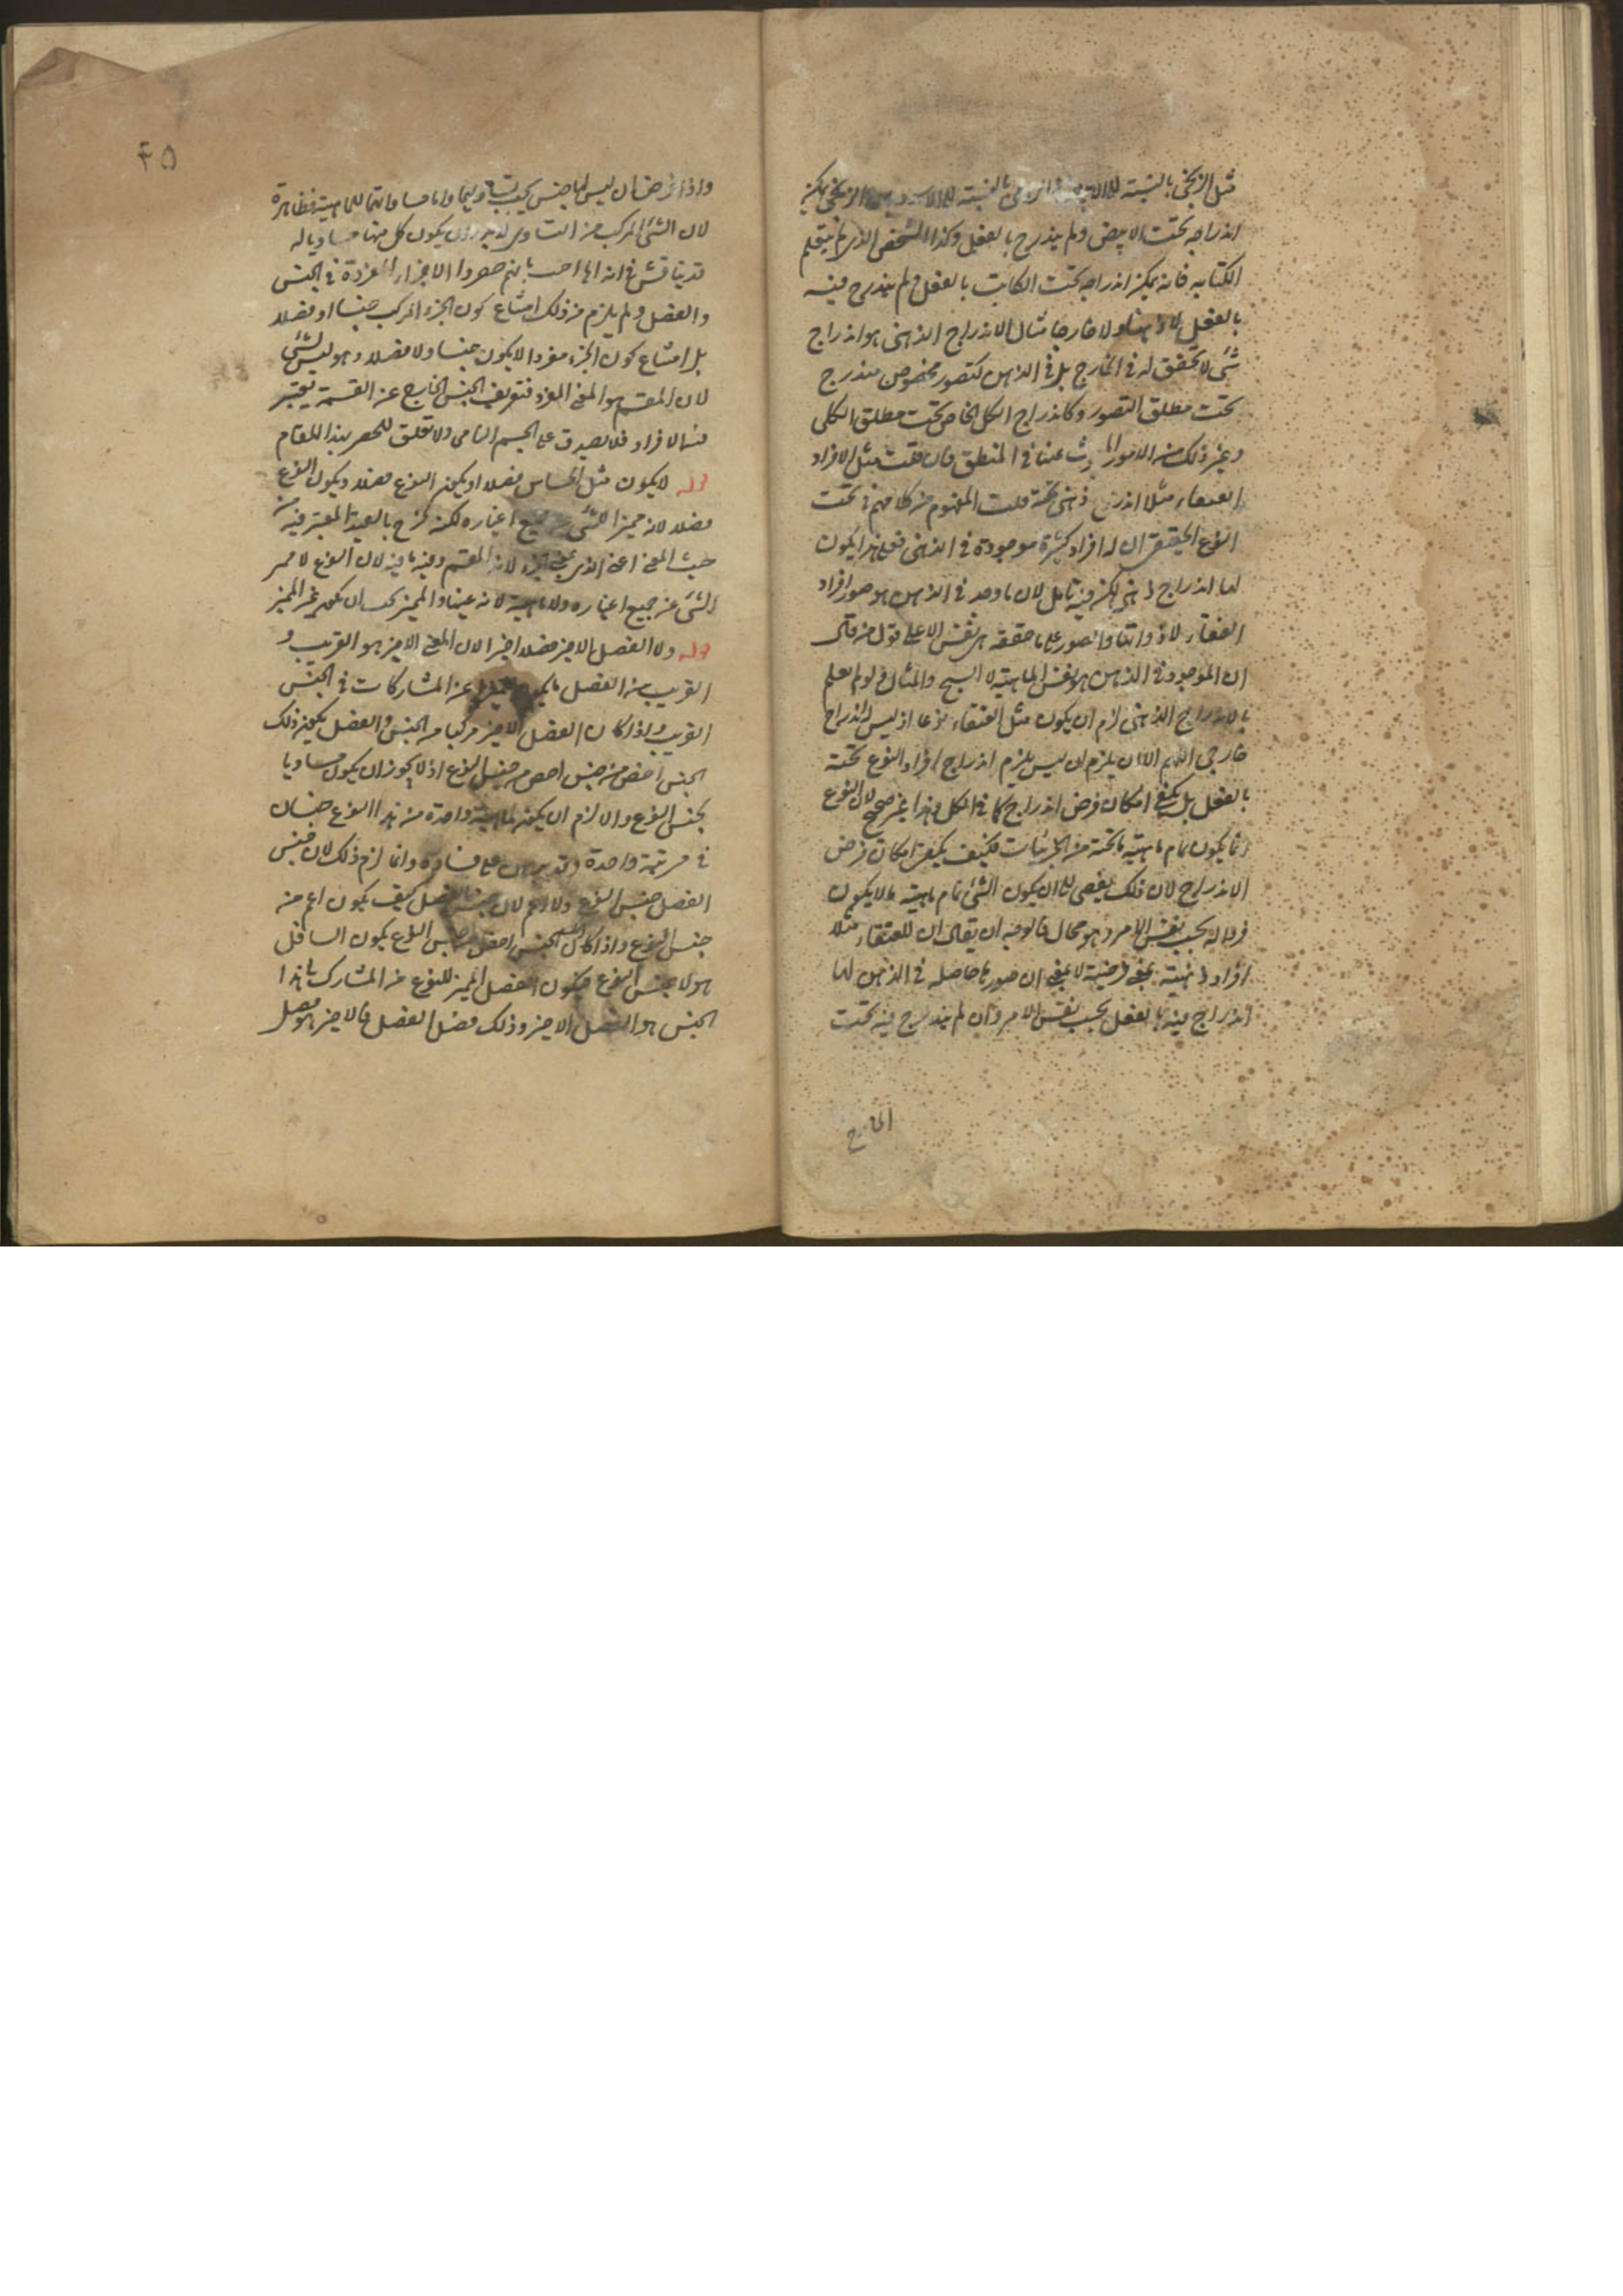 مثل الزنجي بالنسبة الى الابيض والرومي بالنسبة الى الاسود الزنجي يمكن
اندراجه تحت الابيض ولم يندرج بالفعل وكذا الشخص الذي لم يتعلم
الكتابة فانه يمكن اندراجه تحت الكاتب بالفعل ولم يندرج فيه
بالفعل لا ذهنا ولا خارجا مثال الاندراج الذهني هو اندراج
شيء لا تحقق له في الخارج بل في الذهن كتصور مخصوص مندرج
تحت مطلق التصور وكاندراج الكلي الخاص تحت مطلق الكلي
وغير ذلك من الامور عنها في المنطق فان قلت مثل الافراد
العنقاء مثلا ذهني تحته قلت المفهوم من كلامهم في تحت
النوع الحقيقي ان له افراد كثيرة موجودة في الذهن فعلى هذا يكون
لها اندراج ذهني لكن فيه تامل لان ما وجد في الذهن هو صور افراد
العنقاء لا ذواتها والصور على ما حققه نفس الا على قول من قال
ان الموجود في الذهن هو نفس الماهية لا الشبح والمثال ولو لم نعلم
بالاندراج الذهني لزم ان يكون مثل العنقاء نوعا اذ ليس له اندراج
خارجي اللهم الا ان يلزم ان ليس يلزم اندراج افراد النوع تحته
بالفعل بل يكفي امكان فرض اندراج كما في الكلي وهذا غير صحيح لان النوع
انما يكون تمام ماهية ما تحته من الجزئيات فكيف يكفي امكان فرض
الاندراج لان ذلك يفضي الى ان يكون الشيء تمام ماهية ما لا يكون
فردا له بحسب نفس الامر وهو محال فالوجه ان يقال ان للعنقاء مثلا
افراد ذهنية بمعنى فرضية لا بمعنى ان صورها حاصلة في الذهن لها
اندراج فيه بالفعل بحسب نفس الامر وان لم يندرج فيه تحت
الخارج
٤٥
واذا فرضنا ان ليس لها جنس مساواتهما للماهية فظاهرة
لان الشيء المركب من المتساوي يكون كل منهما مساويا له
قد يناقش في انه بانهم حصروا الاجزاء المفردة في الجنس
والفصل ولم يلزم من ذلك امتناع كون الجزء المركب جنسا او فصلا
بل امتناع كون الجزء مفردا لا يكون جنسا ولا فصلا وهو ليس بشيء
لان المقسم هو المعنى المفرد فتعريف الجنس الخارج عن القسمة يعتبر
فيه الافراد فلا يصدق على الجسم النامي ولا تعلق للحصر بهذا المقام
قوله لا يكون مثل الحساس فصلا او يكون النوع فصلا ويكون النوع
فصلا لانه مميز الشيء عن جميع اغياره لكنه خرج بالقيد المعتبر فيه من
حيث المعنى اعني الذي لانه المقسم وفيه ما فيه لان النوع لا يميز
الشيء عن جميع اغياره ولا ماهية لانه عينها والمميز يجب ان يكون غير المميز
قوله ولا الفصل الاخير فصلا اخيرا لان المعنى الاخير هو القريب و
القريب من الفصل ما يكون مميزا عن المشاركات في الجنس
القريب واذا كان الفصل الاخير مركبا من الجنس والفصل يكون ذلك
الجنس اخص من جنس اخص من جنس النوع اذ لا يجوز ان يكون مساويا
لجنس النوع والا لزم ان يكون لماهية واحدة من هذا النوع جنسان
في مرتبة واحدة وقد برهن على فساده وانما لزم ذلك لان جنس
الفصل جنس النوع ولا اعم لان جنس الفصل كيف يكون اعم من
جنس النوع واذا كان الجنس اخص من جنس النوع يكون السافل
هو لا جنس النوع فيكون الفصل المميز للنوع عن المشارك بهذا
الجنس هو الفصل الاخير وذلك فصل الفصل فالاخير هو فصل